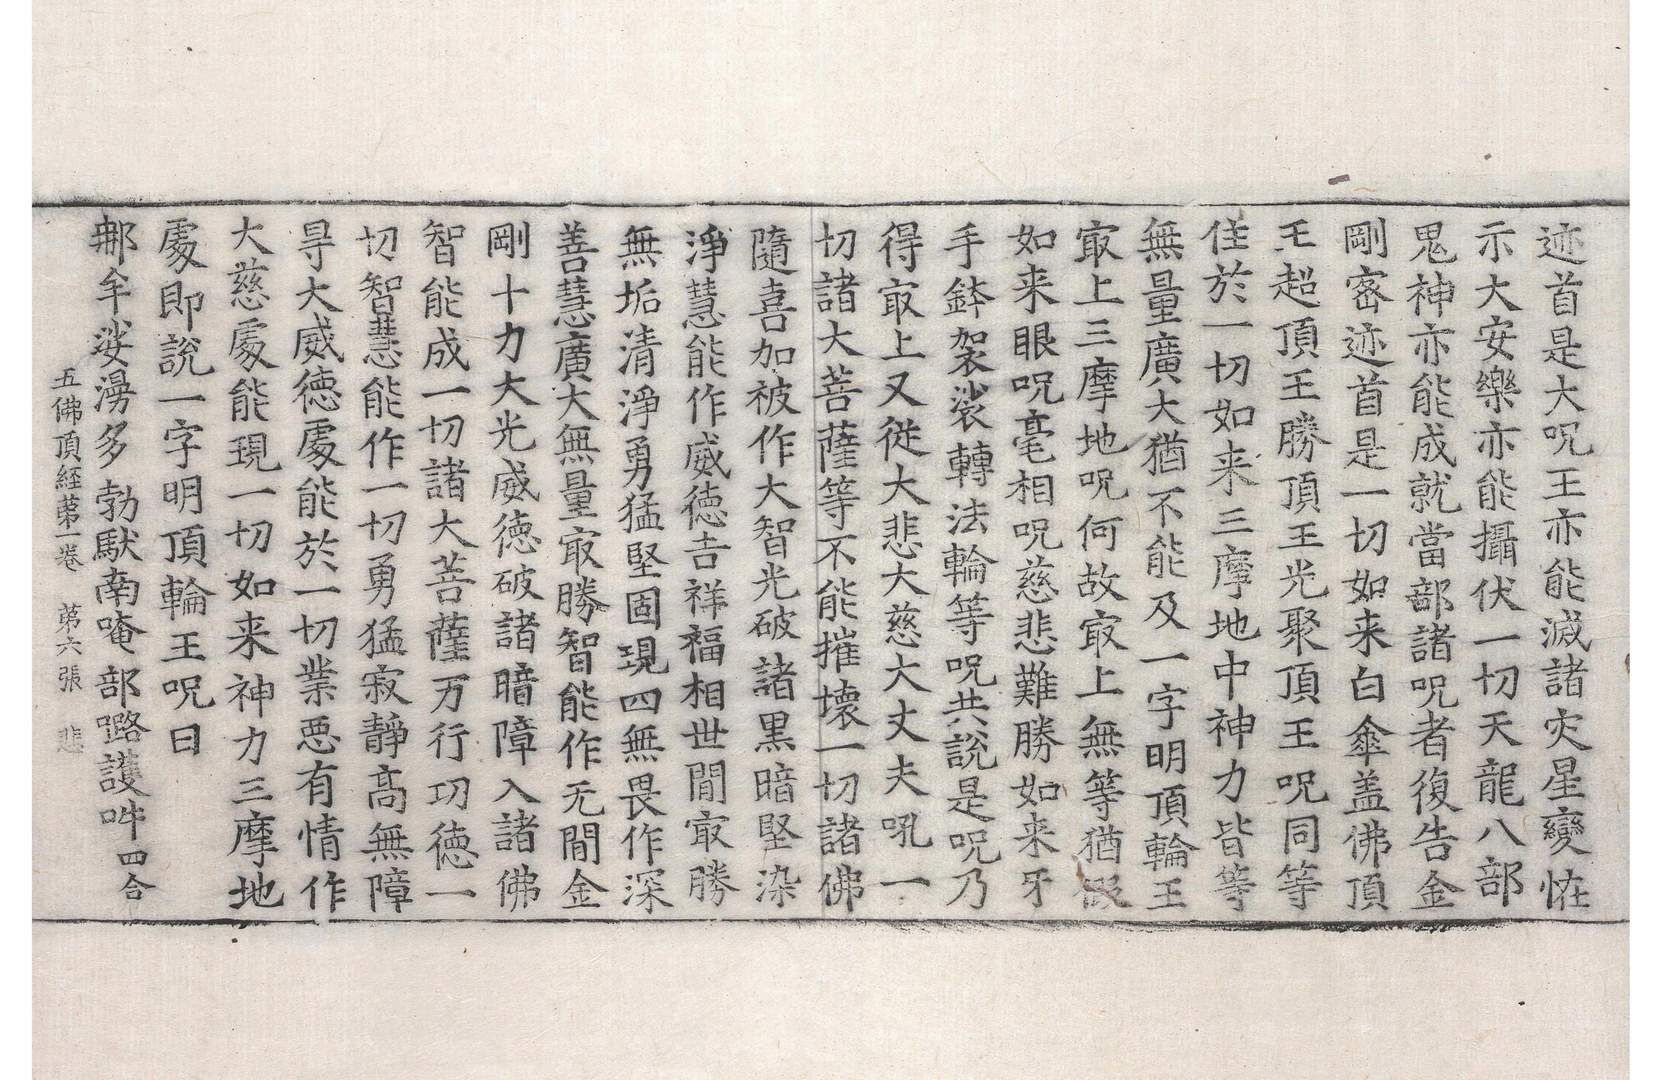 迹首是大呪王亦能滅諸灾星變恠
示大安樂亦能攝伏一切天龍八部
鬼神亦能成就當部諸呪者復告金
剛宻迹首是一切如来白傘盖佛頂
王超頂王勝頂王光聚頂王呪同等
住於一切如来三摩地中神力皆等
無量廣大猶不能及一字明頂輪王
㝡上三摩地呪何故㝡上無等猶假
如来眼呪毫相呪慈悲難勝如来牙
手鉢袈裟轉法輪等呪共說是呪乃
得㝡上又従大悲大慈大丈夫吼一
切諸大菩薩等不能摧壊一切諸佛
隨喜加被作大智光破諸黒暗堅染
淨慧能作威徳吉祥福相世間㝡勝
無垢清淨勇猛堅固現四無畏作深
善慧廣大無量㝡勝智能作无間金
剛十力大光威徳破諸暗障入諸佛
智能成一切諸大菩薩万行功徳一
切智慧能作一切勇猛寂靜髙無障
㝵大威徳處能於一切業悪有情作
大慈處能現一切如来神力三摩地
處即說一字明頂輪王呪曰
那牟娑湯多勃馱南唵部嚕䕶吽四合
五佛頂経苐一卷　苐六張　悲